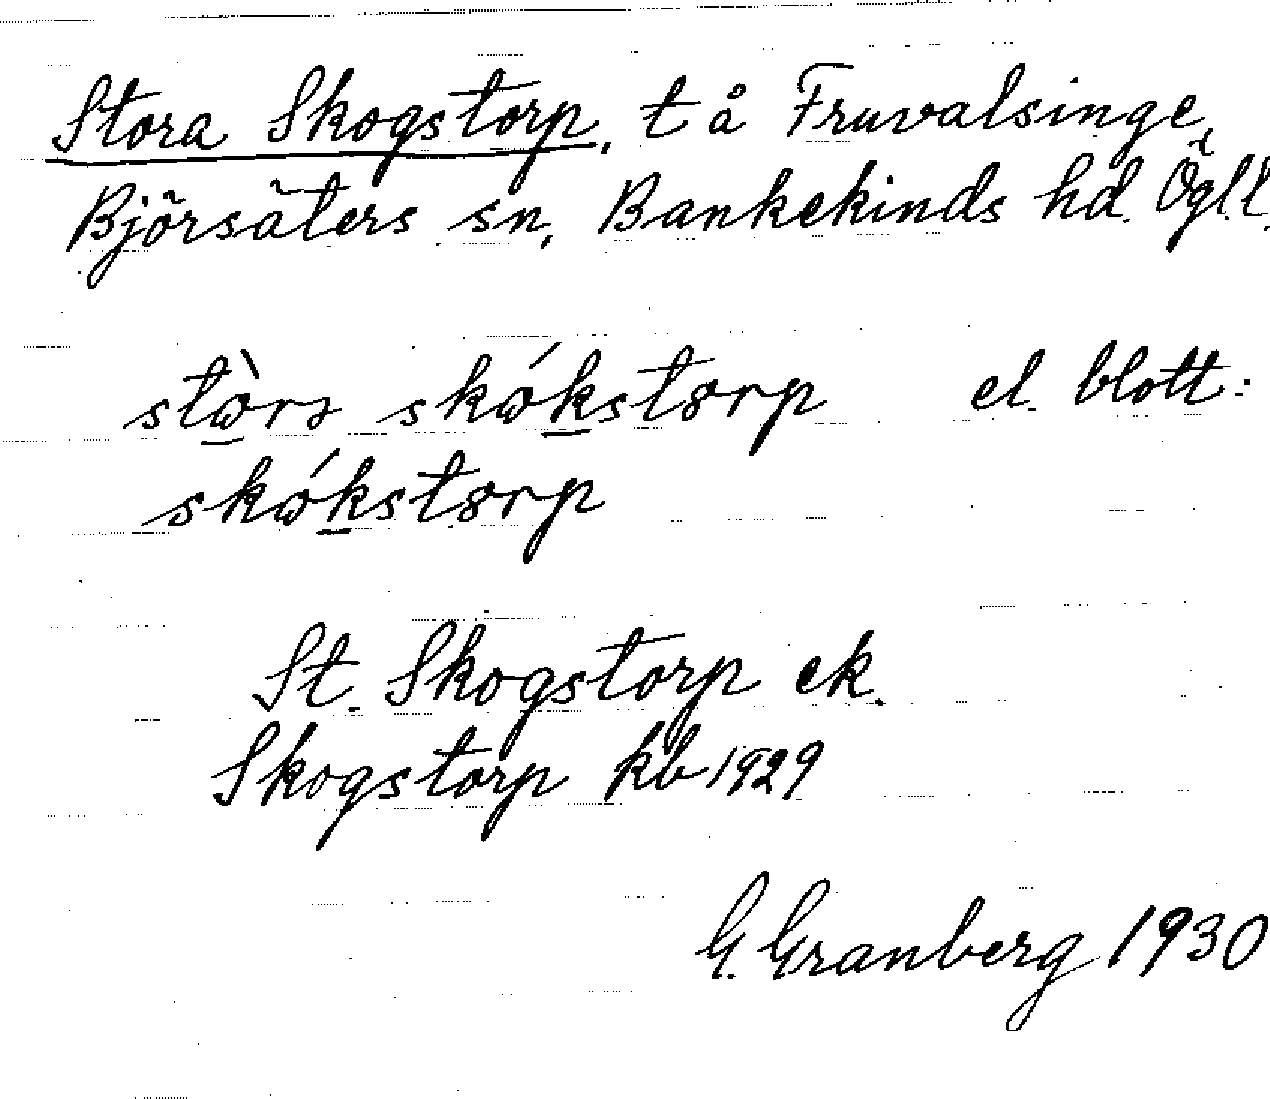 Stora Skogstorp, t å Fruvalsinge,
Björsäters sn, Bankekinds hd. Ögll.
stὼrɜ skώkstɷrp el. blott:
skώkstɷrp
St. Skogstorp ek.
Skogstorp kb 1929
G. Granberg 1930